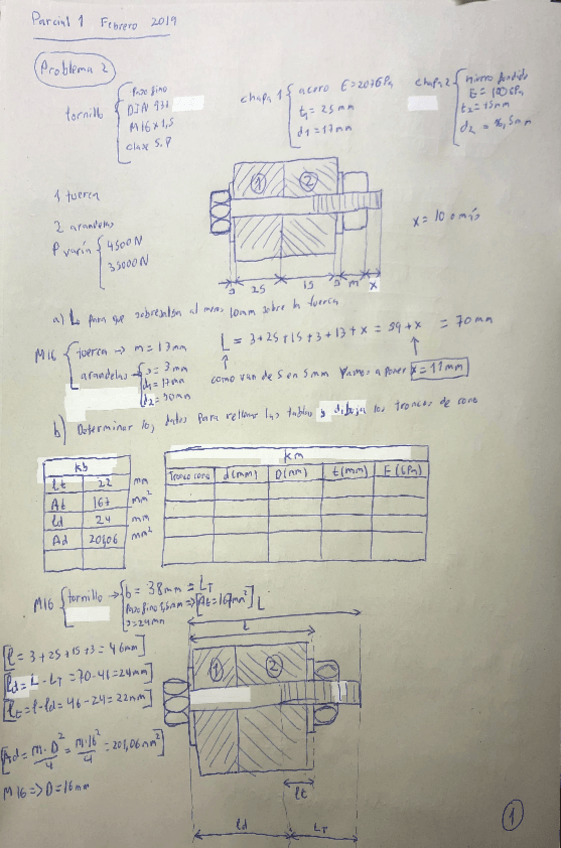 Parcial 1 Febrero 2019
Problema 2
tornillo { Paso fino
DIN 931
M16 x 1,5
clase 5.8
chapa 1 { acero E=207GPa
t1 = 25mm
d1 = 17mm
chapa 2 { hierro fundido
E = 100GPa
t2 = 15mm
1 tuerca
2 arandelas
P varía { 4500N
35000N
① ②
x = 10 o más
3 25 15 3 m x
a) L para que sobresalga al menos 10mm sobre la tuerca
M16 { tuerca → m = 13mm
arandelas { s = 3mm
d1 = 17mm
d2 = 30mm
L = 3+25+15+3+13+x = 59+x = 70mm
como van de 5 en 5mm vamos a poner x = 11mm
b) Determinar los datos para rellenar las tablas y dibuja los troncos de cono
kb
lt 22 mm
At 167 mm²
ld 24 mm
Ad 201,06 mm²
km
Tronco cono d(mm) D(mm) t(mm) E(GPa)
M16 { tornillo → { b = 38mm = LT
Paso fino 1,5mm => [At = 167mm²]
s = 24mm
[l = 3+25+15+3 = 46mm]
[ld = L - LT = 70-46 = 24mm]
[lt = l-ld = 46-24 = 22mm]
[Ad = π·D²/4 = π·16²/4 = 201,06mm²]
M16 => D = 16mm
L
l
① ②
lt
ld LT
1